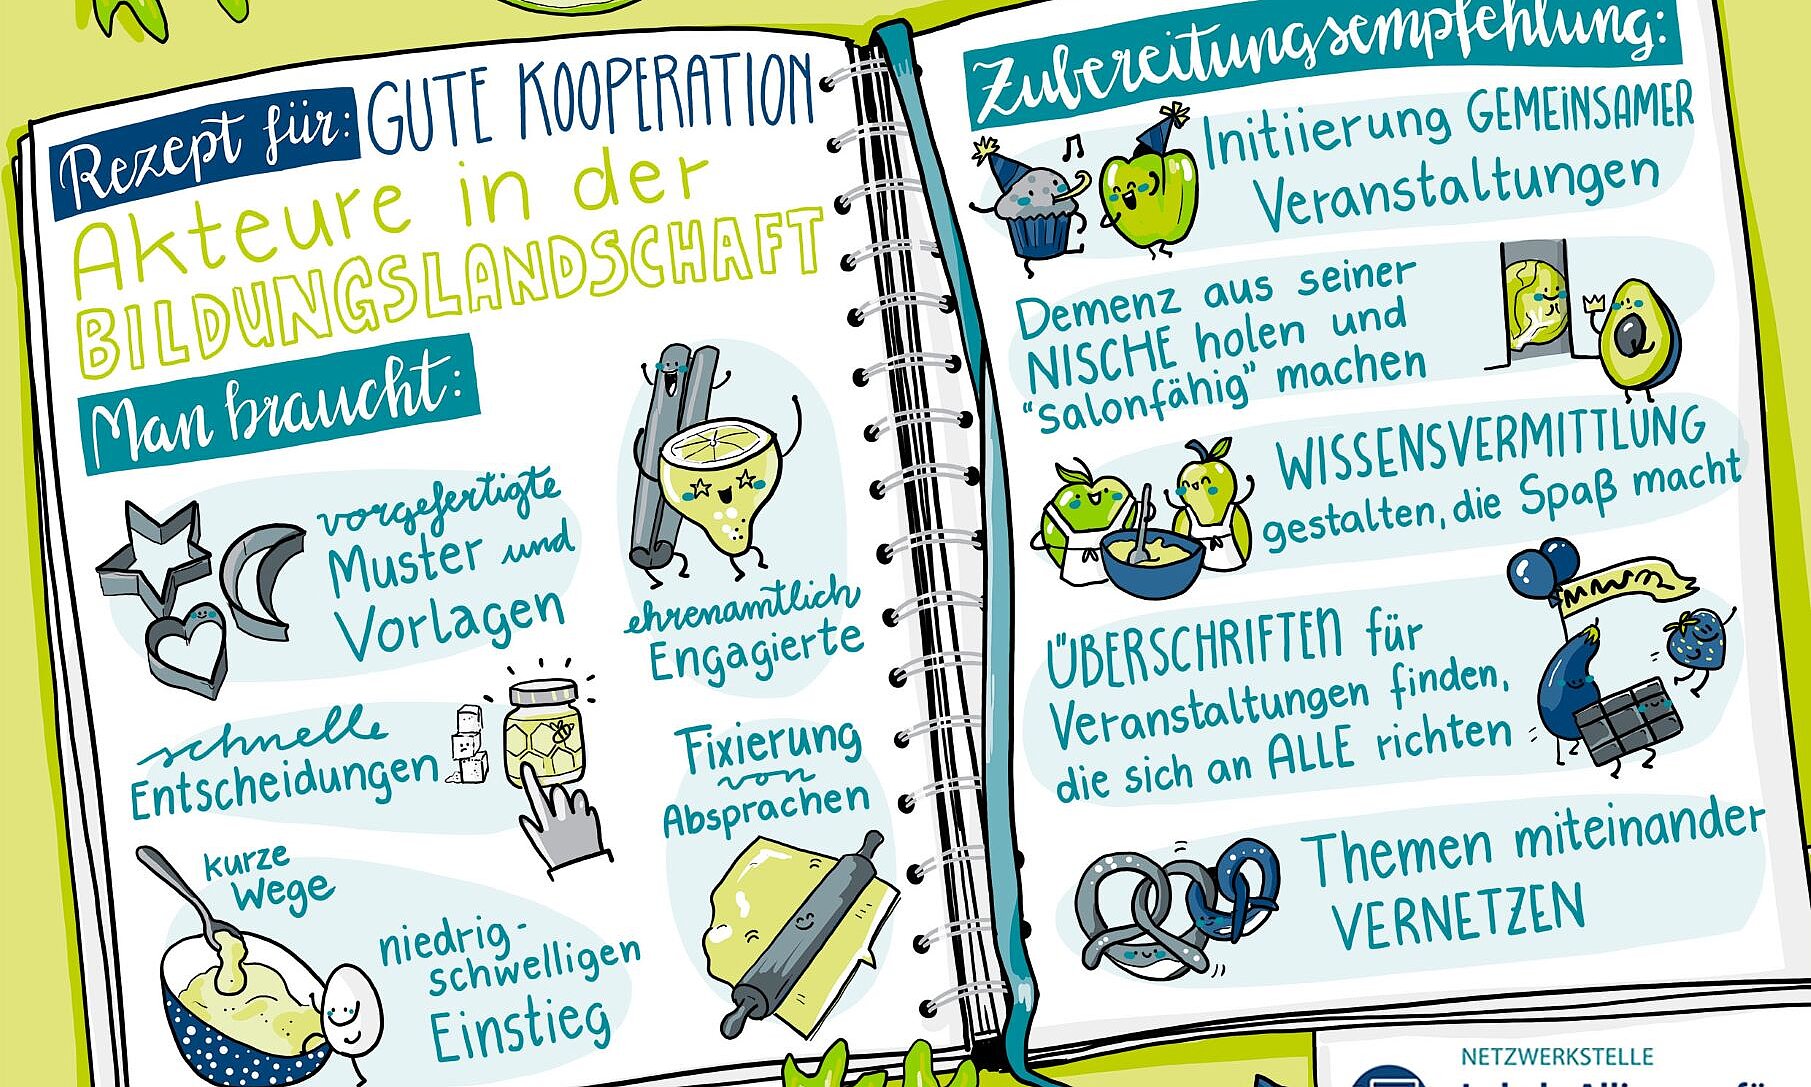 Rezept für: GUTE KOOPERATION
Akteure in der
BILDUNGSLANDSCHAFT
Man braucht:
vorgefertigte
Muster und
Vorlagen
ehrenamtlich
Engagierte
schnelle
Entscheidungen
Fixierung
von
Absprachen
kurze
Wege
niedrig-
schwelligen
Einstieg
Zubereitungsempfehlung:
Initiierung GEMEINSAMER
Veranstaltungen
Demenz aus seiner
NISCHE holen und
"salonfähig" machen
WISSENSVERMITTLUNG
gestalten, die Spaß macht
ÜBERSCHRIFTEN für
Veranstaltungen finden,
die sich an ALLE richten
Themen miteinander
VERNETZEN
NETZWERKSTELLE